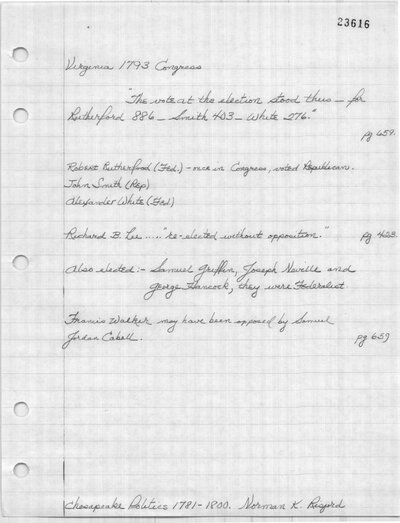 23616
Virginia 1793 Congress
"The vote at the election stood thus — for
Rutherford 886 — Smith 403 — White 276."
pg 659.
Robert Rutherford (Fed.) - once in Congress, voted Republican.
John Smith (Rep)
Alexander White (Fed)
Richard B. Lee ..... "re-elected without opposition." pg 423.
Also elected:- Samuel Griffin, Joseph Neville and
George Hancock, they were Federalist
Francis Walker may have been opposed by Samuel
Jordan Cabell. pg 659
Chesapeake Politics 1781-1800. Norman K. Risjord